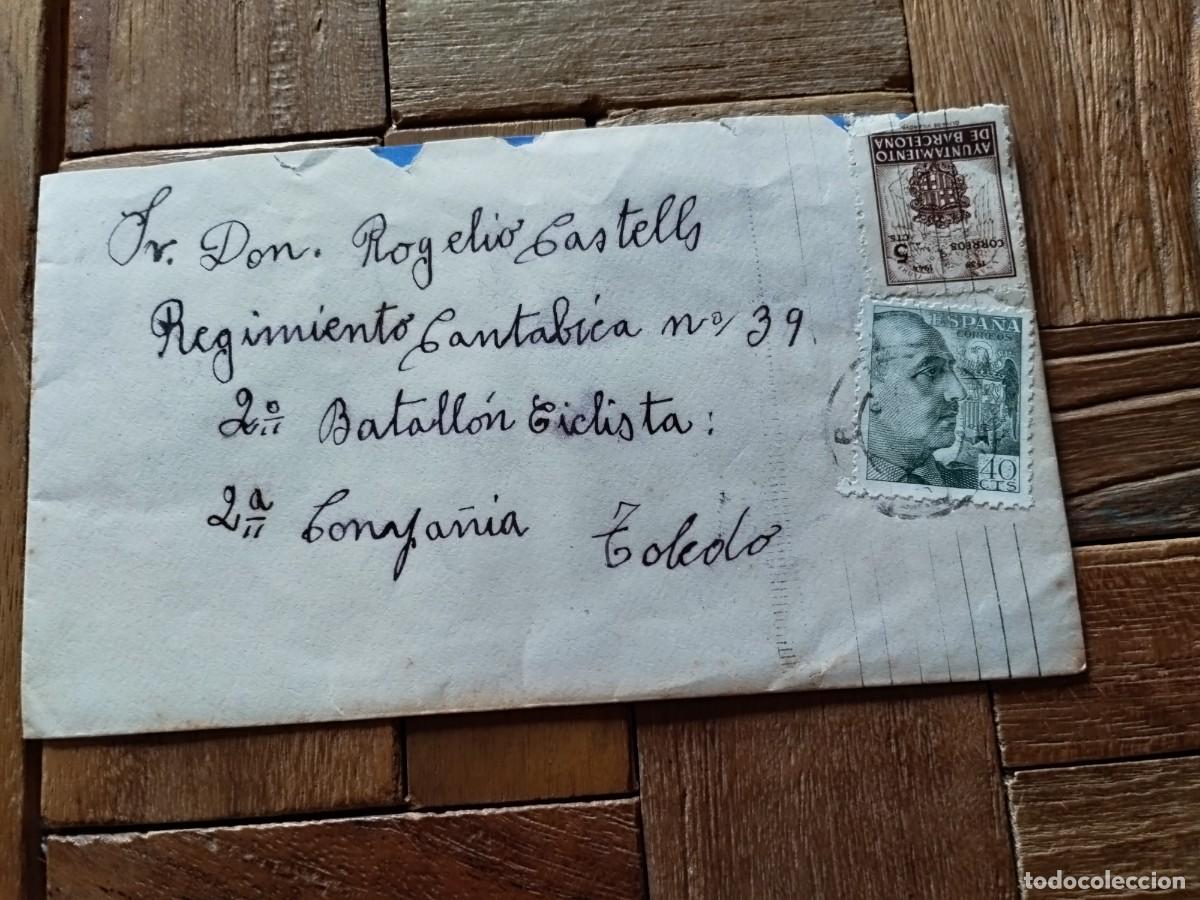 Sr. Don. Rogelio Castells
Regimiento Cantabica nº 39
2º Batallón Ciclista:
2ª Conpañia Toledo
AYUNTAMIENTO
DE BARCELONA
5
CTS
CORREOS
ESPAÑA
CORREOS
40
CTS
todocoleccion